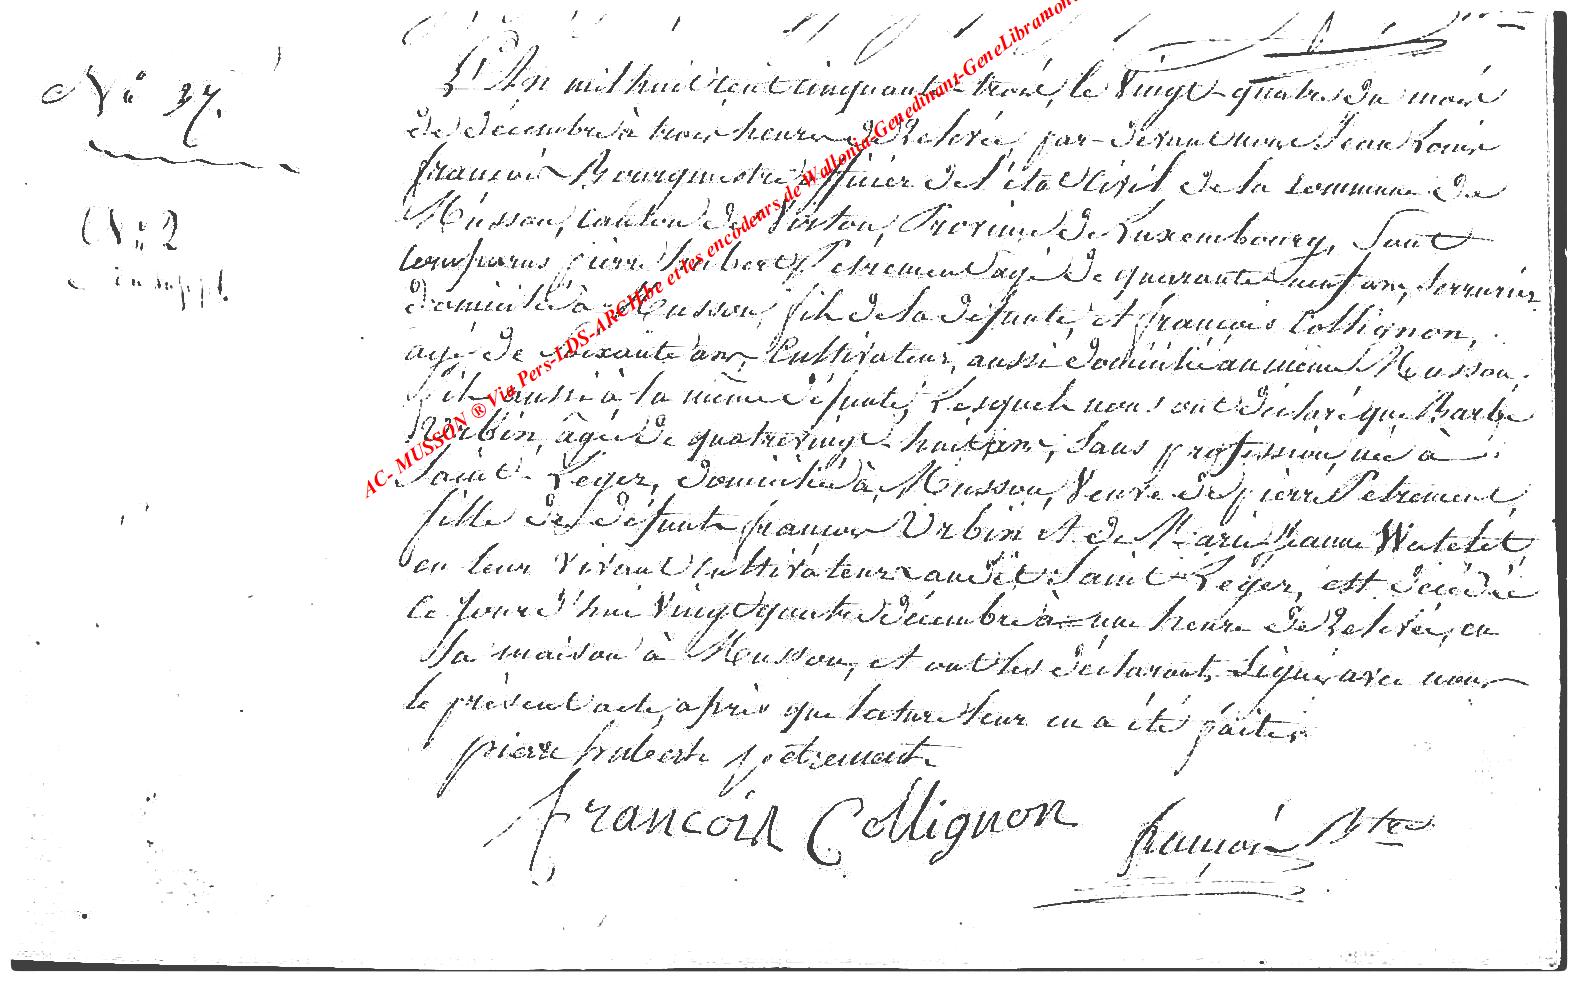 N° 37.
N° 2
in suppl.
L'An mil huit cent cinquante-trois, le Vingt-quatre du mois
de décembre à trois heures de Relevée, par-devant nous Jean Louis
françois Bourguestre officier de l'état Civil de la commune de
Musson, Canton de Virton, Province de Luxembourg, Sont
Comparus pierre hubert Petrement âgé de quarante neuf ans, Serrurier
domicilié à Musson, fils de la défunte, et françois Collignon,
âgé de soixante ans, Cultivateur, aussi domicilié au même Musson,
fils aussi à la même défunte, Lesquels nous ont déclaré que Barbe
Urbin, âgée de quatrevingt-huit ans, Sans profession, née à
Saint-Léger, domiciliée à Musson, Veuve de pierre Petrement,
fille des défunts françois Urbin et de Marie Jeanne Watelet
en leur Vivant Cultivateurs audit Saint-Léger, est décédée
Ce jourd'hui Vingt quatre décembre à une heure de Relevée, en
Sa maison à Musson, et ont les déclarants Signé avec nous
le présent acte, après que lecture leur en a été faite.
pierre hubert petrement
francois Collignon
françois Btre
AC- MUSSON ® Via Pers-LDS-ARCHbe et les encodeurs de Wallonia-Genedinant-GeneLibramont